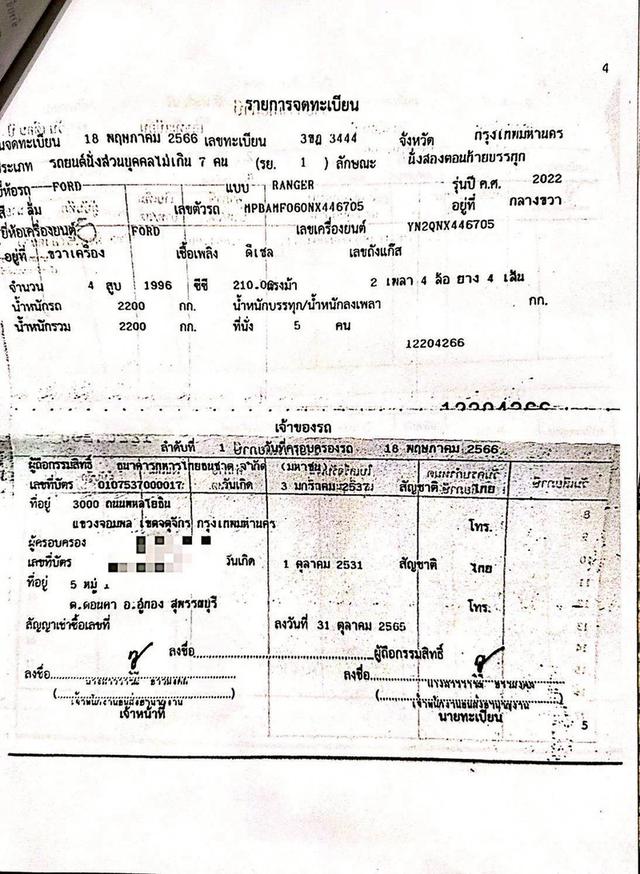 4
รายการจดทะเบียน
นจดทะเบียน 18 พฤษภาคม 2566 เลขทะเบียน 3ขฎ 3444 จังหวัด กรุงเทพมหานคร
ประเภท รถยนต์นั่งส่วนบุคคลไม่เกิน 7 คน (รย. 1 ) ลักษณะ นั่งสองตอนท้ายบรรทุก
ยี่ห้อรถ FORD แบบ RANGER รุ่นปี ค.ศ. 2022
สี ส้ม เลขตัวรถ MPBAMF060NX446705 อยู่ที่ กลางขวา
ยี่ห้อเครื่องยนต์ FORD เลขเครื่องยนต์ YN2QNX446705
อยู่ที่ ขวาเครื่อง เชื้อเพลิง ดีเซล เลขถังแก๊ส
จำนวน 4 สูบ 1996 ซีซี 210.00 แรงม้า 2 เพลา 4 ล้อ ยาง 4 เส้น
น้ำหนักรถ 2200 กก. น้ำหนักบรรทุก/น้ำหนักลงเพลา กก.
น้ำหนักรวม 2200 กก. ที่นั่ง 5 คน
12204266
12204266
เจ้าของรถ
ลำดับที่ 1 วันที่ครอบครองรถ 18 พฤษภาคม 2566
ผู้ถือกรรมสิทธิ์ ธนาคารทหารไทยธนชาต จำกัด (มหาชน)
เลขที่บัตร 0107537000017 วันเกิด 3 มกราคม 2537 สัญชาติ ไทย
ที่อยู่ 3000 ถนนพหลโยธิน
แขวงจอมพล เขตจตุจักร กรุงเทพมหานคร โทร.
ผู้ครอบครอง
เลขที่บัตร วันเกิด 1 ตุลาคม 2531 สัญชาติ ไทย
ที่อยู่ 5 หมู่
ต.ดอนคา อ.อู่ทอง สุพรรณบุรี โทร.
สัญญาเช่าซื้อเลขที่ ลงวันที่ 31 ตุลาคม 2565
ลงชื่อ ผู้ถือกรรมสิทธิ์
ลงชื่อ ลงชื่อ
เจ้าหน้าที่ นายทะเบียน
5